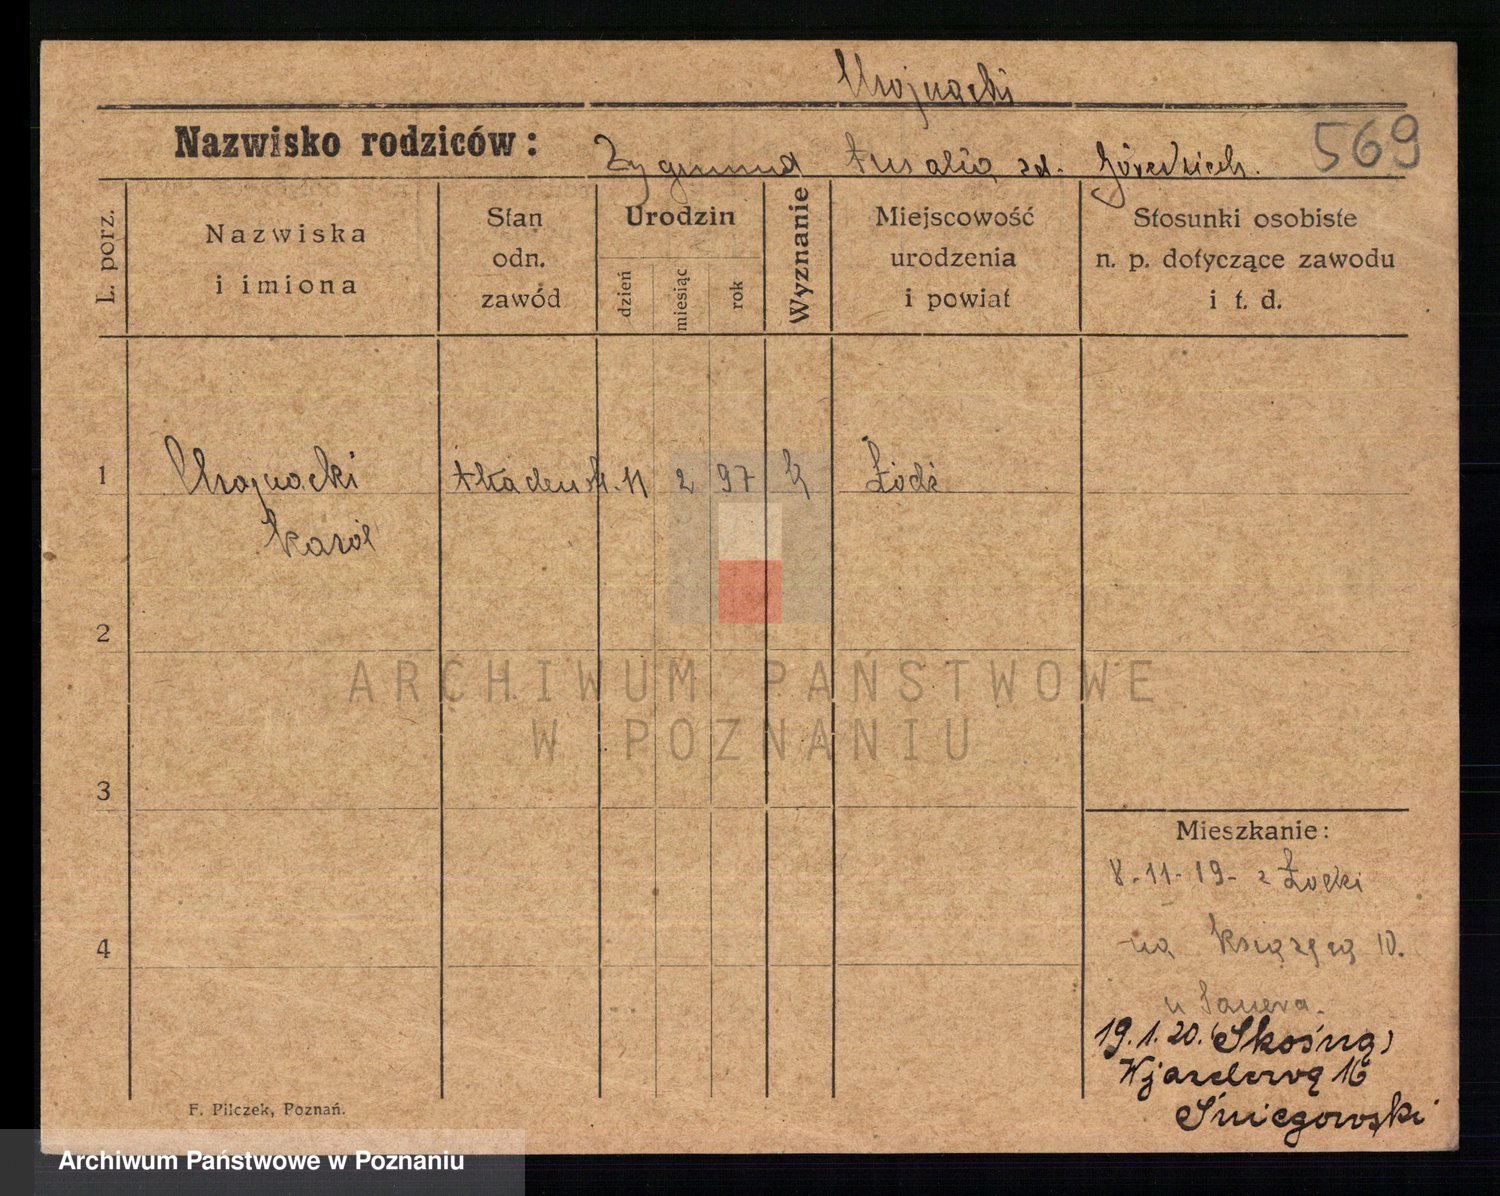 Chojnacki
Nazwisko rodziców: Zygmund zd.
569
L. porz.
Nazwiska
i imiona
Stan
odn.
zawód
Urodzin
dzień
miesiąc
rok
Wyznanie
Miejscowość
urodzenia
i powiat
Stosunki osobiste
n. p. dotyczące zawodu
i t. d.
1 Chojnacki Akademik. 11 2 97 k Łódź
Karol
2
3
4
Mieszkanie:
8-11-19- z Łodzi
na Książęcą 10.
u Sauera.
19.1.20. (Skośną)
Wjazdową 16
Śniegowski
F. Pilczek, Poznań.
ARCHIWUM PAŃSTWOWE
W POZNANIU
Archiwum Państwowe w Poznaniu